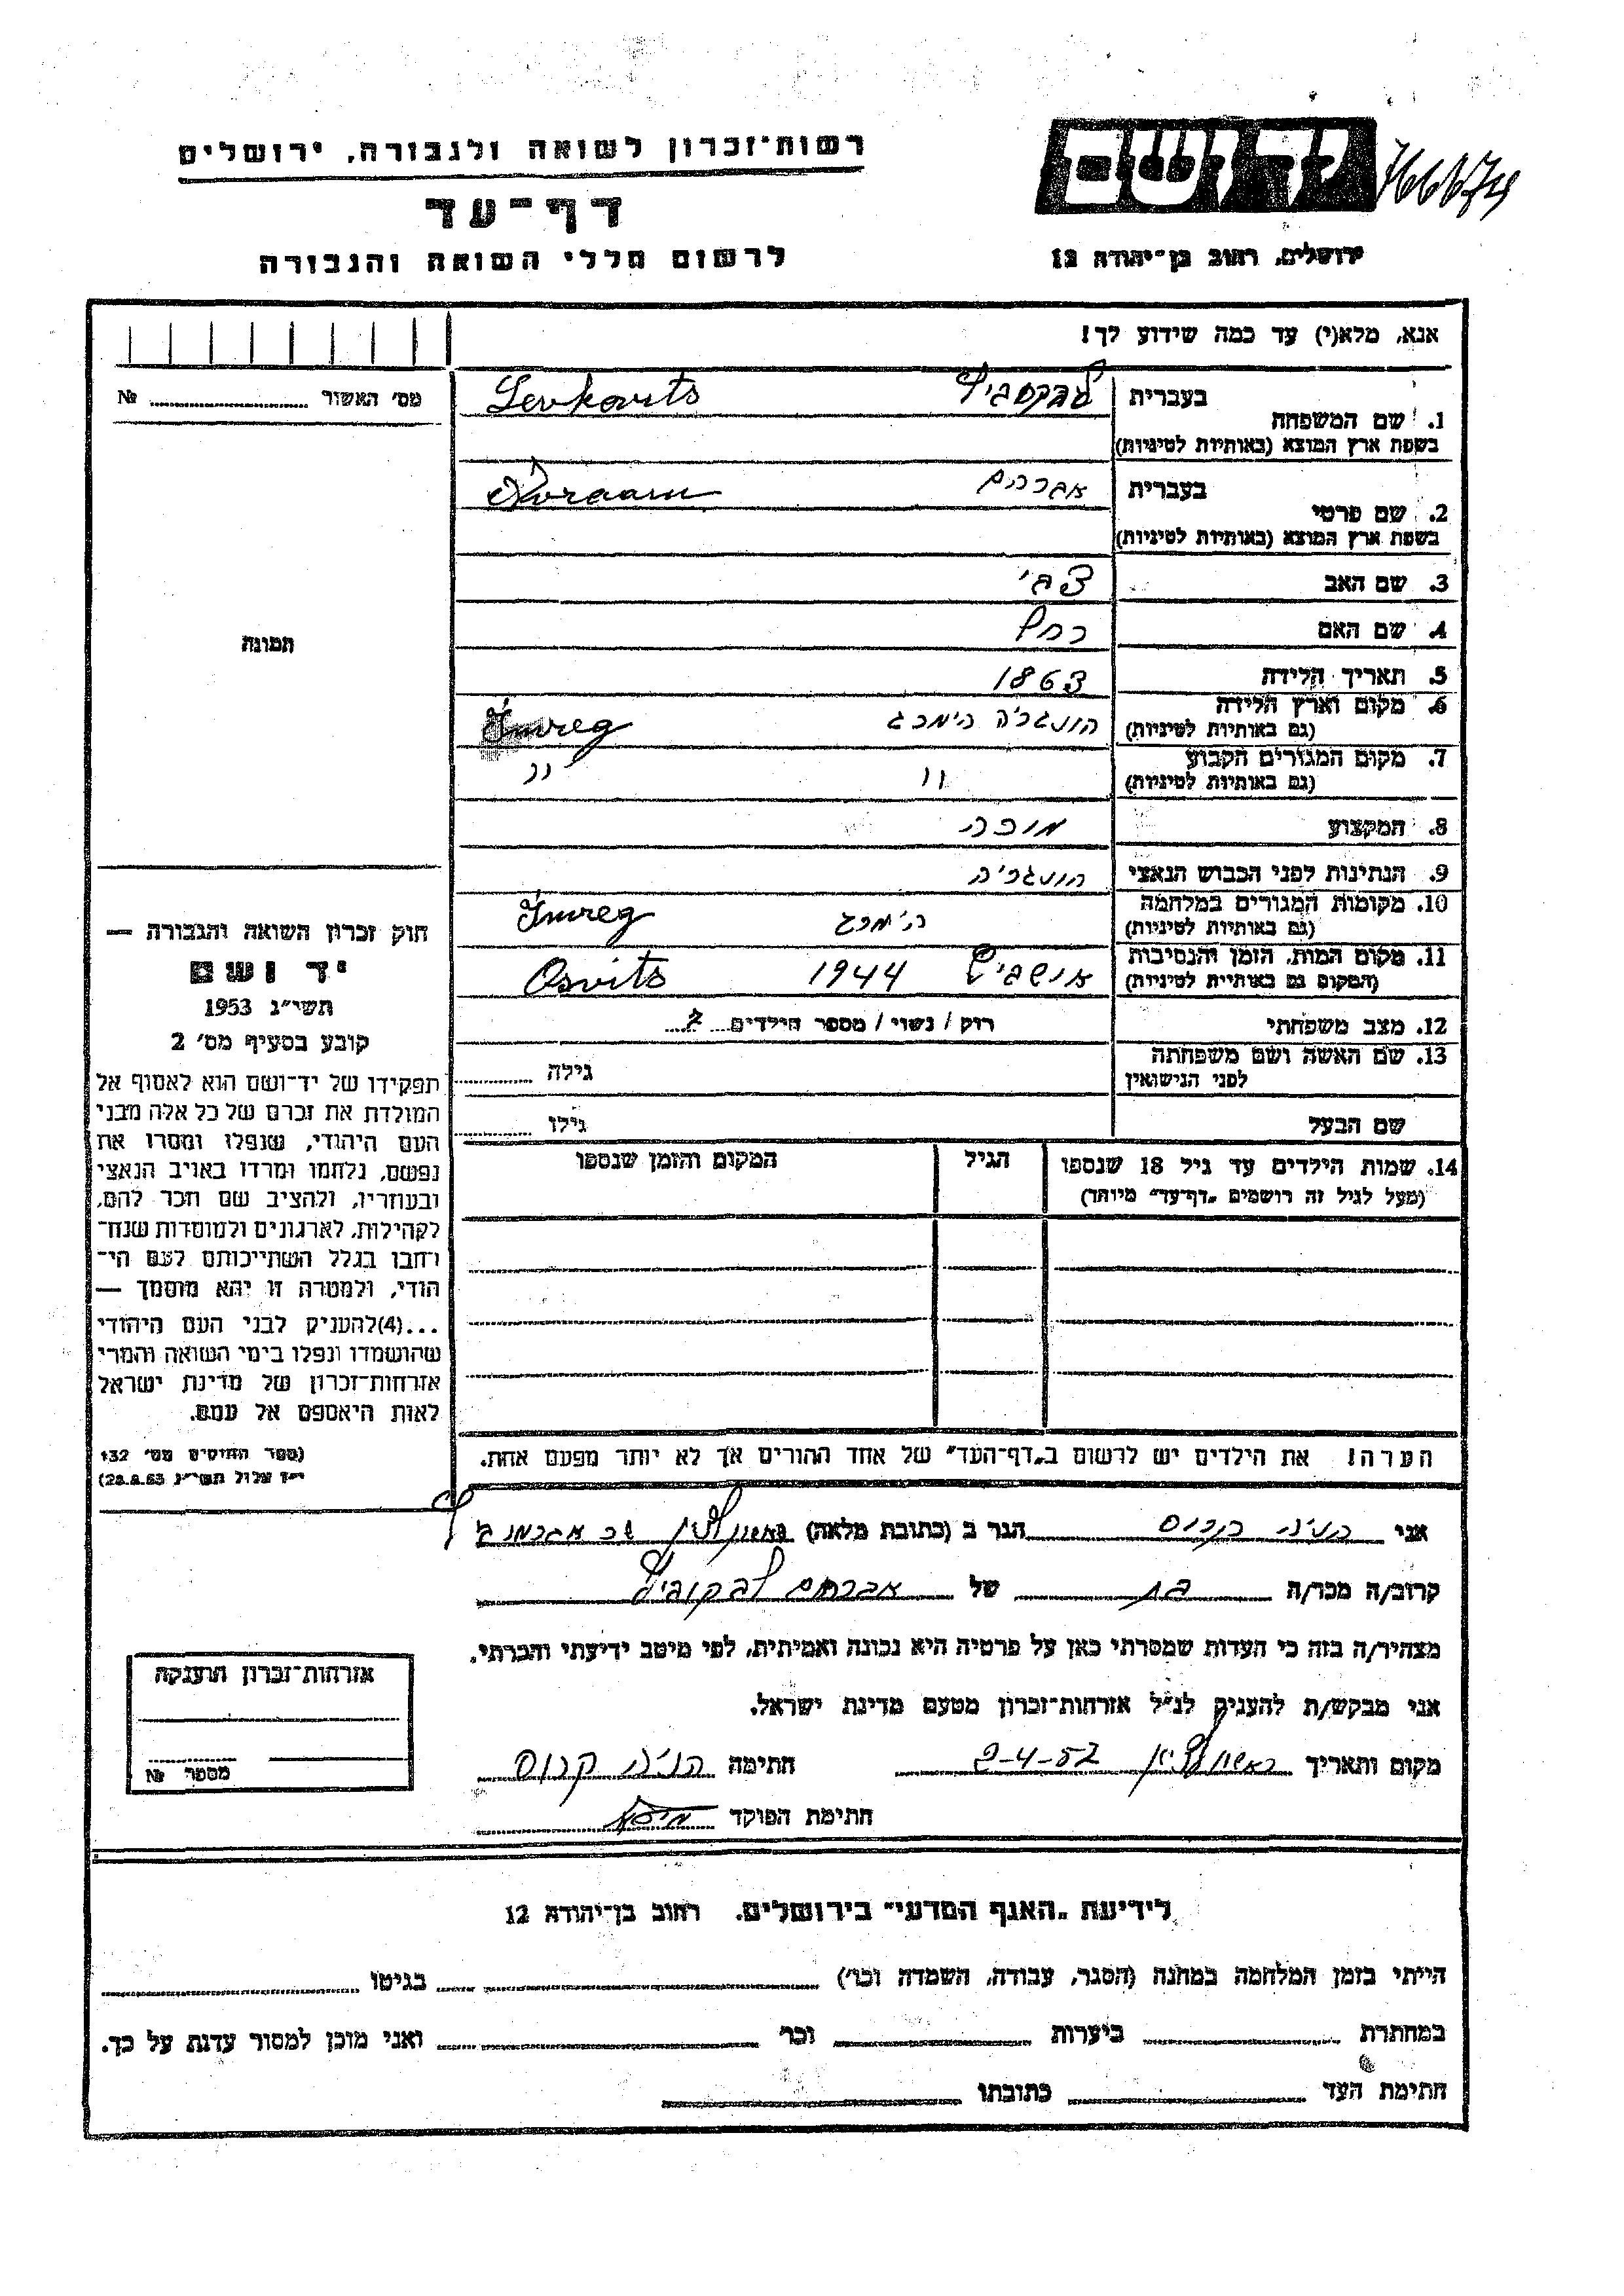 רשות־זכרון לשואה ולגבורה, ירושלים
דף־עד
לרשום חללי השואה והגבורה
יד ושם
ירושלים, רחוב בן־יהודה 12
אנא, מלא(י) עד כמה שידוע לך!
מס׳ האשור № 
1. שם המשפחה
בעברית
Levkovits
בשפת ארץ המוצא (באותיות לטיניות)
2. שם פרטי
בעברית אברהם
בשפת ארץ המוצא (באותיות לטיניות)
3. שם האב צבי
4. שם האם רחל
5. תאריך הלידה 1863
6. מקום וארץ הלידה הונגריה הימרג Imreg
(גם באותיות לטיניות)
7. מקום המגורים הקבוע " "
(גם באותיות לטיניות)
8. המקצוע מורה
9. הנתינות לפני הכבוש הנאצי הונגריה
10. מקומות המגורים במלחמה הימרג Imreg
(גם באותיות לטיניות)
11. מקום המות, הזמן והנסיבות 1944 Osvits
(המקום גם באותיית לטיניות)
12. מצב משפחתי רווק / נשוי / מספר הילדים
13. שם האשה ושם משפחתה גילה
לפני הנישואין
שם הבעל גילו
14. שמות הילדים עד גיל 18 שנספו הגיל המקום והזמן שנספו
(מעל לגיל זה רושמים „דף־עד״ מיוחד)
תמונה
חוק זכרון השואה והגבורה —
יד ושם
תשי״ג 1953
קובע בסעיף מס׳ 2
תפקידו של יד־ושם הוא לאסוף אל
המולדת את זכרם של כל אלה מבני
העם היהודי, שנפלו ומסרו את
נפשם, נלחמו ומרדו באויב הנאצי
ובעוזריו, ולהציב שם וזכר להם,
לקהילות, לארגונים ולמוסדות שנח־
רחבו בגלל השתייכותם לעם הי־
הודי, ולמטרה זו יהא מוסמך —
...(4)להעניק לבני העם היהודי
שהושמדו ונפלו בימי השואה והמרי
אזרחות־זכרון של מדינת ישראל
לאות היאספם אל עמם.
(ספר החוקים מס׳ 132
הערה! את הילדים יש לרשום ב„דף־העד״ של אחד ההורים אך לא יותר מפעם אחת.
אני הגר ב (כתובת מלאה) ראשון לציון
קרוב/ה מכר/ה בת של אברהם לבקוביץ
מצהיר/ה בזה כי העדות שמסרתי כאן על פרטיה היא נכונה ואמיתית, לפי מיטב ידיעתי והכרתי.
אני מבקש/ת להעניק לנ״ל אזרחות־זכרון מטעם מדינת ישראל.
מקום ותאריך ראשון לציון חתימה
חתימת הפוקד
אזרחות־זכרון הוענקה
מספר №
לידיעת „האגף המדעי״ בירושלים, רחוב בן־יהודה 12
הייתי בזמן המלחמה במחנה (הסגר, עבודה, השמדה וכר׳) בגיטו
במחתרת ביערות וכר׳ ואני מוכן למסור עדות על כך.
חתימת העד כתובתו